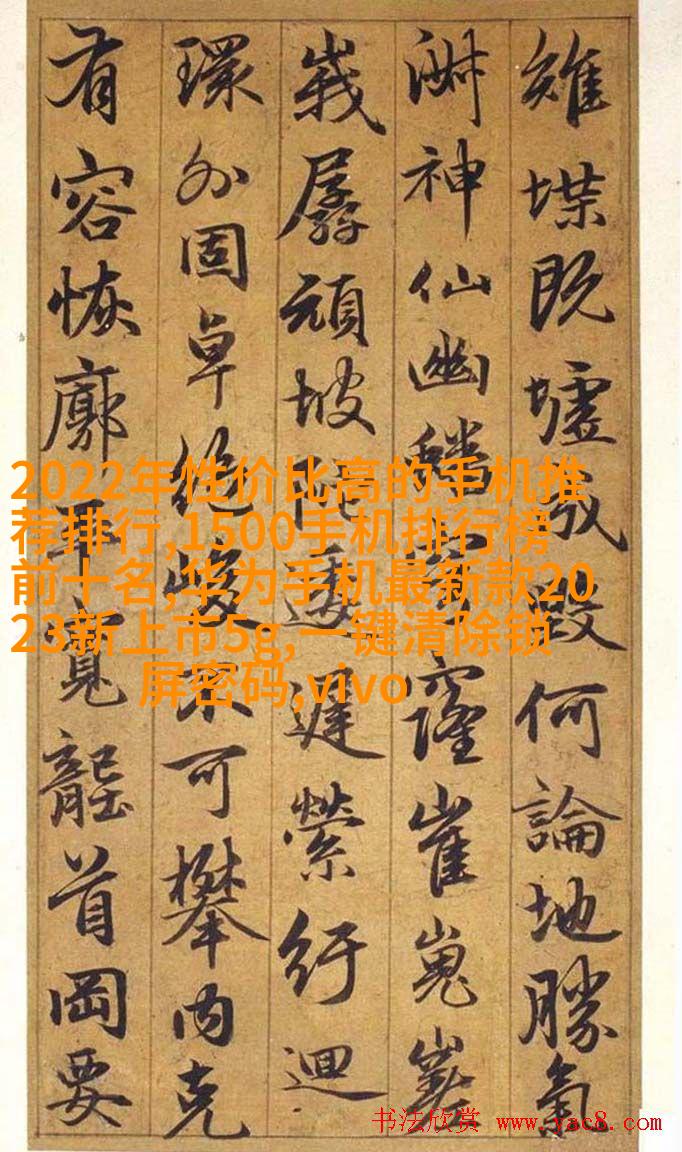 雉堞既墟成毀何論地勝氣
淑神仙幽蟠穹窿崔嵬嵳
峩孱頑坡陁逶遲縈紆迴
環外固卓絕峻不可攀內克
有容恢廓平寬首岡要
2022年性价比高的手机推
荐排行,1500手机排行榜
前十名,华为手机最新款20
23新上市5g,一键清除锁
屏密码,vivo
书法欣赏 www.yac8.com